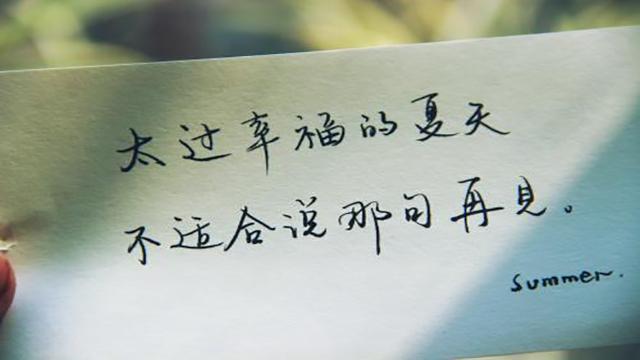 太过幸福的夏天
不适合说那句再见。
summer.